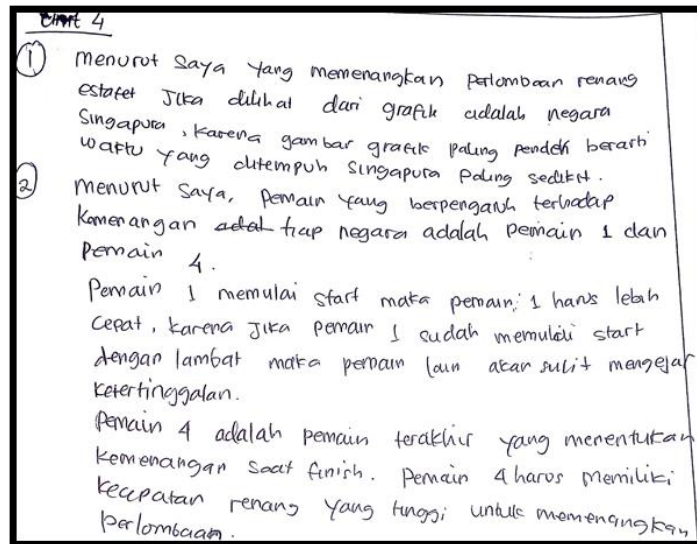 Unit 4
① Menurut saya yang memenangkan perlombaan renang
estafet jika dilihat dari grafik adalah negara
Singapura, karena gambar grafik paling pendek berarti
waktu yang ditempuh Singapura paling sedikit.
② Menurut saya, pemain yang berpengaruh terhadap
Kemenangan adal tiap negara adalah pemain 1 dan
Pemain 4.
Pemain 1 memulai start maka pemain 1 harus lebih
cepat, karena jika pemain 1 sudah memulai start
dengan lambat maka pemain lain akan sulit mengejar
ketertinggalan.
Pemain 4 adalah pemain terakhir yang menentukan
kemenangan saat finish. Pemain 4 harus memiliki
kecepatan renang yang tinggi untuk memenangkan
perlombaan.